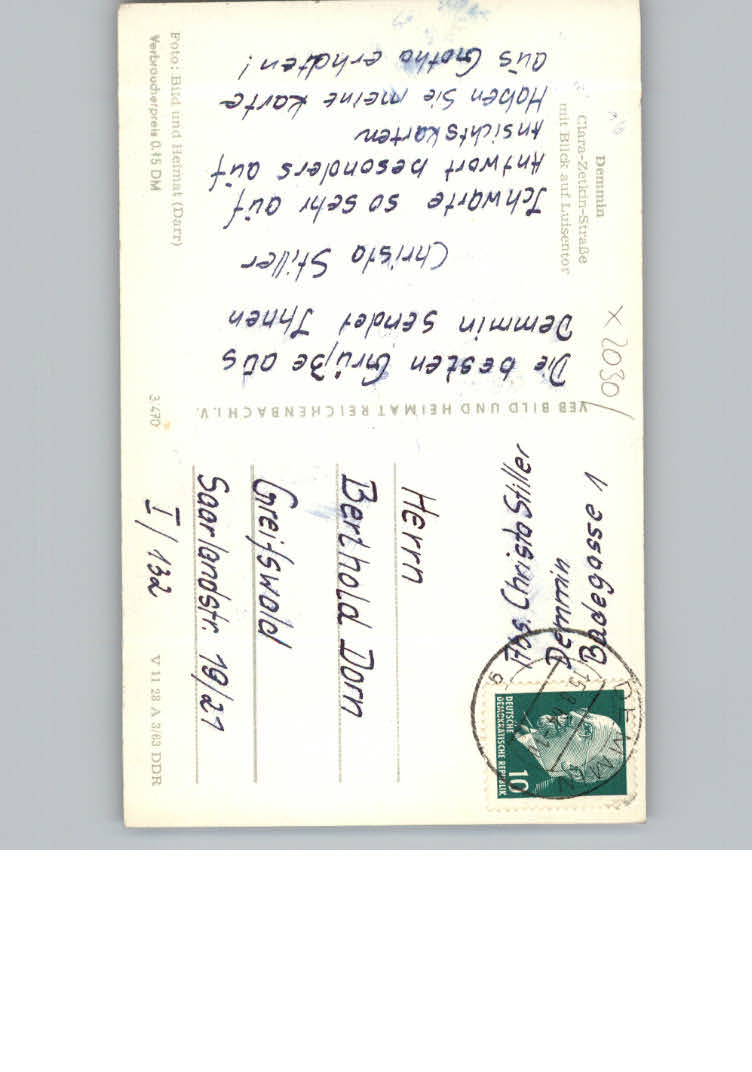 Demmin
Clara-Zetkin-Straße
mit Blick auf Luisentor
Die besten Grüße aus
Demmin sendet Ihnen
Christa Stiller
Ich warte so sehr auf
Antwort besonders auf
Ansichtskarten
Haben Sie meine Karte
aus Gotha erhalten!
Foto: Bild und Heimat (Darr)
Verbraucherpreis 0.15 DM
VEB BILD UND HEIMAT REICHENBACH I. V.
3/470
x 2030/
Abs. Christa Stiller
Demmin
Badegasse 1
Herrn
Berthold Dorn
Greifswald
Saarlandstr. 19/21
I/132
V 11 28 A 3/63 DDR
DEUTSCHE
DEMOKRATISCHE REPUBLIK
10
DEMMIN